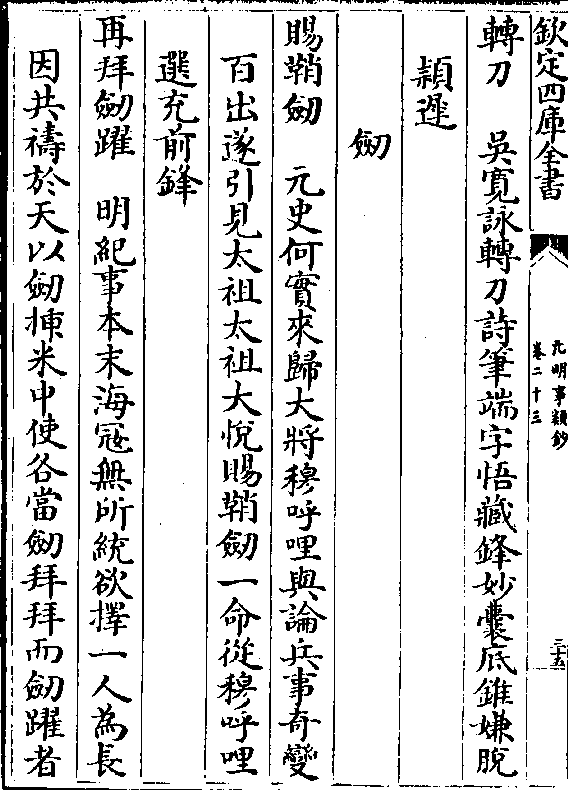 欽定四庫全書
元明事類鈔
卷二十三
三十五
轉刀　吳寛詠轉刀詩筆端字悟藏鋒妙囊底錐嫌脫
穎遲
劒
賜鞘劒　元史何實來歸大將穆呼哩與論兵事奇變
百出遂引見太祖太祖大悅賜鞘劒一命從穆呼哩
選充前鋒
再拜劒躍　明紀事本末海冦無所統欲擇一人為長
因共禱於天以劒揷米中使各當劒拜拜而劒躍者